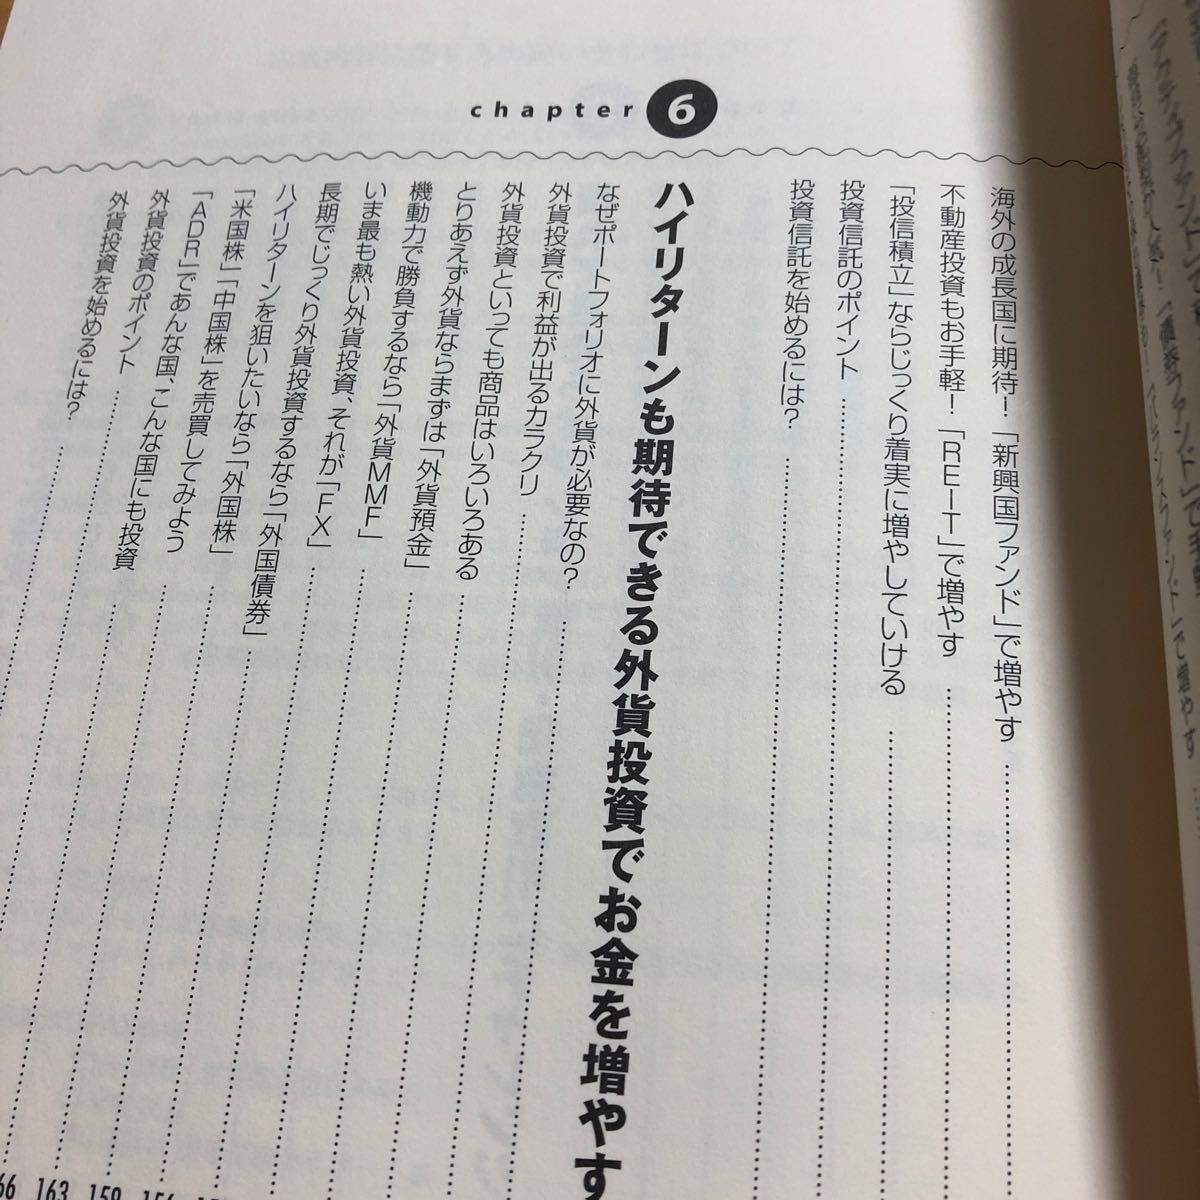 海外の成長国に期待！「新興国ファンド」で増やす
不動産投資もお手軽！「REIT」で増やす
「投信積立」ならじっくり着実に増やしていける
投資信託のポイント
投資信託を始めるには？
chapter 6
ハイリターンも期待できる外貨投資でお金を増やす
なぜポートフォリオに外貨が必要なの？
外貨投資で利益が出るカラクリ
外貨投資といっても商品はいろいろある
とりあえず外貨ならまずは「外貨預金」
機動力で勝負するなら「外貨MMF」
いま最も熱い外貨投資、それが「FX」
長期でじっくり外貨投資するなら「外国債券」
ハイリターンを狙いたいなら「外国株」
「米国株」「中国株」を売買してみよう
「ADR」であんな国、こんな国にも投資
外貨投資のポイント
外貨投資を始めるには？
163 159 156